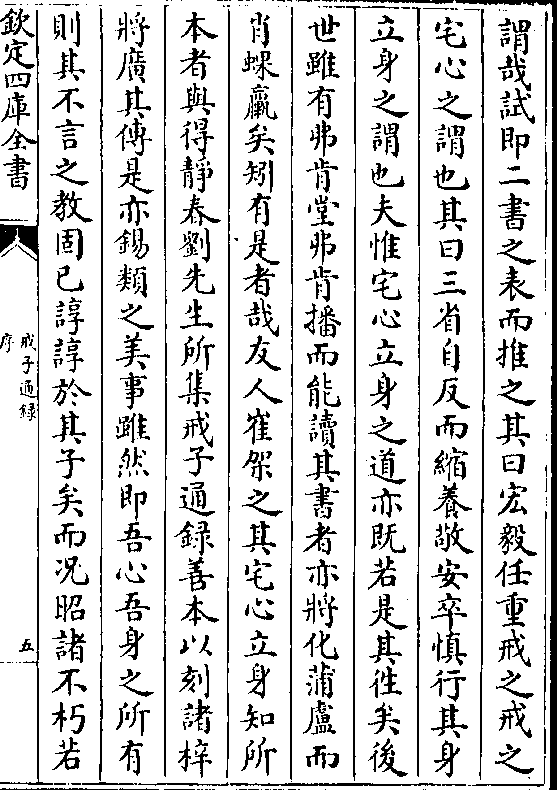 謂哉試即二書之表而推之其曰宏毅任重戒之戒之
宅心之謂也其曰三省自反而縮養敬安卒慎行其身
立身之謂也夫惟宅心立身之道亦既若是其徃矣後
世雖有弗肯堂弗肯播而能讀其書者亦將化蒲盧而
肖蜾蠃矣矧有是者哉友人崔架之其宅心立身知所
本者與得靜春劉先生所集戒子通録善本以刻諸梓
將廣其傳是亦錫類之美事雖然即吾心吾身之所有
則其不言之教固已諄諄於其子矣而况昭諸不朽若
欽定四庫全書
戒子通録
序
五